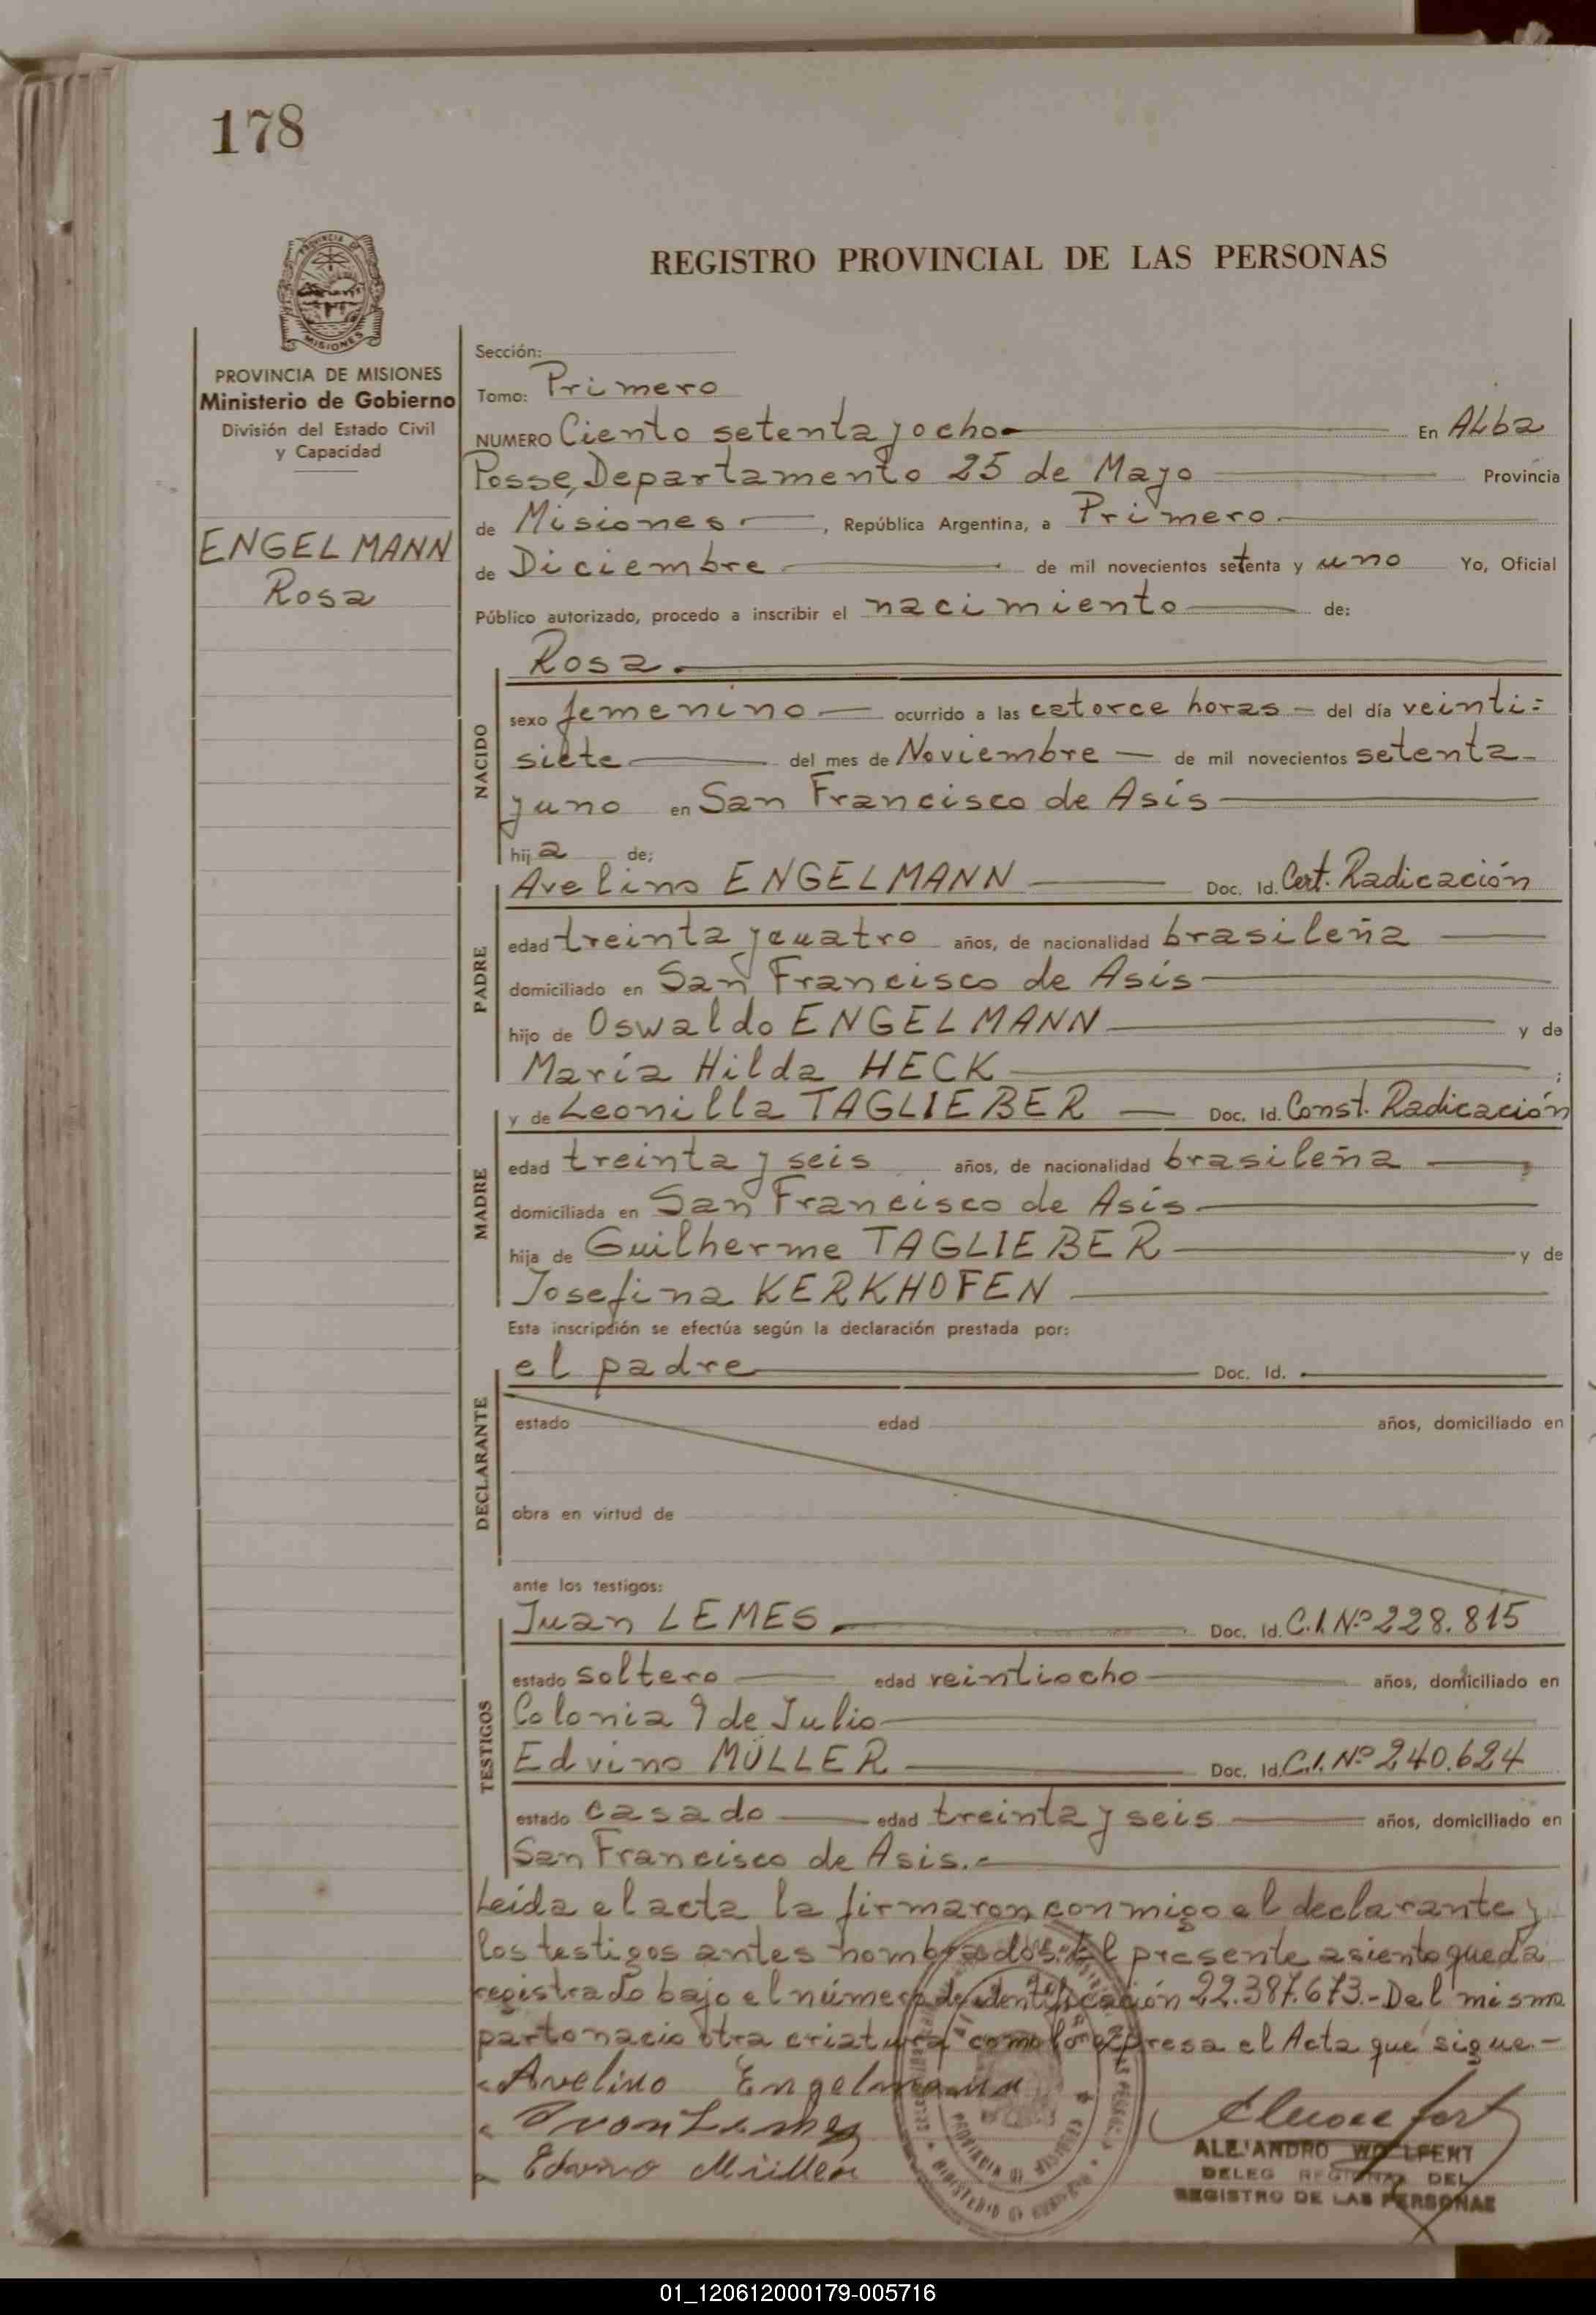 178
REGISTRO PROVINCIAL DE LAS PERSONAS
PROVINCIA DE
MISIONES
PROVINCIA DE MISIONES
Ministerio de Gobierno
División del Estado Civil
y Capacidad
ENGELMANN
Rosa
Sección:
Tomo: Primero
NUMERO Ciento setenta y ocho En Alba
Posse, Departamento 25 de Mayo Provincia
de Misiones, República Argentina, a Primero
de Diciembre de mil novecientos setenta y uno Yo, Oficial
Público autorizado, procedo a inscribir el nacimiento de:
NACIDO
Rosa.
sexo femenino ocurrido a las catorce horas del día veinti=
siete del mes de Noviembre de mil novecientos setenta
y uno en San Francisco de Asís
hija de;
PADRE
Avelino ENGELMANN Doc. Id. Cert. Radicación
edad treinta y cuatro años, de nacionalidad brasileña
domiciliado en San Francisco de Asís
hijo de Oswaldo ENGELMANN y de
María Hilda HECK ;
MADRE
y de Leonilla TAGLIEBER Doc. Id. Const. Radicación
edad treinta y seis años, de nacionalidad brasileña
domiciliada en San Francisco de Asís
hija de Guilherme TAGLIEBER y de
Josefina KERKHOFEN
Esta inscripción se efectúa según la declaración prestada por:
DECLARANTE
el padre Doc. Id.
estado edad años, domiciliado en
obra en virtud de
ante los testigos:
TESTIGOS
Juan LEMES. Doc. Id. C.I. Nº 228.815
estado soltero edad veintiocho años, domiciliado en
Colonia 9 de Julio
Edvino MÜLLER Doc. Id. C.I. Nº 240.624
estado casado edad treinta y seis años, domiciliado en
San Francisco de Asis.-
Leída el acta la firmaron conmigo el declarante y
los testigos antes nombrados.-El presente asiento queda
registrado bajo el número de identificación 22.387.673.-Del mismo
parto nacio otra criatura como lo expresa el Acta que sigue.-
Avelino Engelmann
Juan Lemes
Edvino Müller
ALEJANDRO WOELFERT
DELEG REGIONAL DEL
REGISTRO DE LAS PERSONAS
01_120612000179-005716